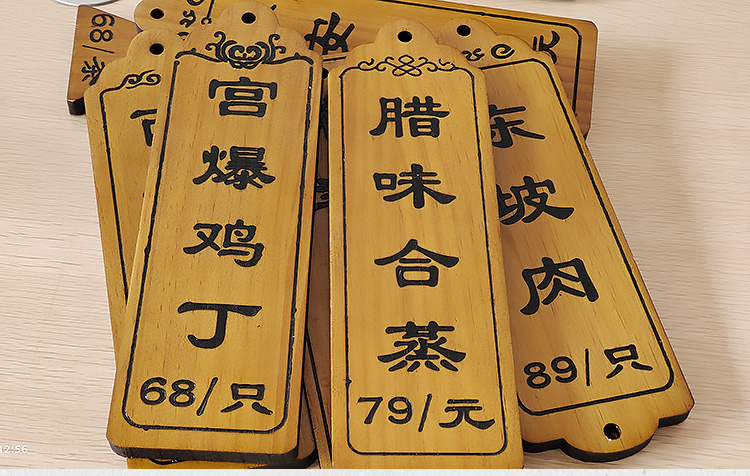 宫爆鸡丁
68/只
腊味合蒸
79/元
东坡肉
89/只
68/条
元
12:56